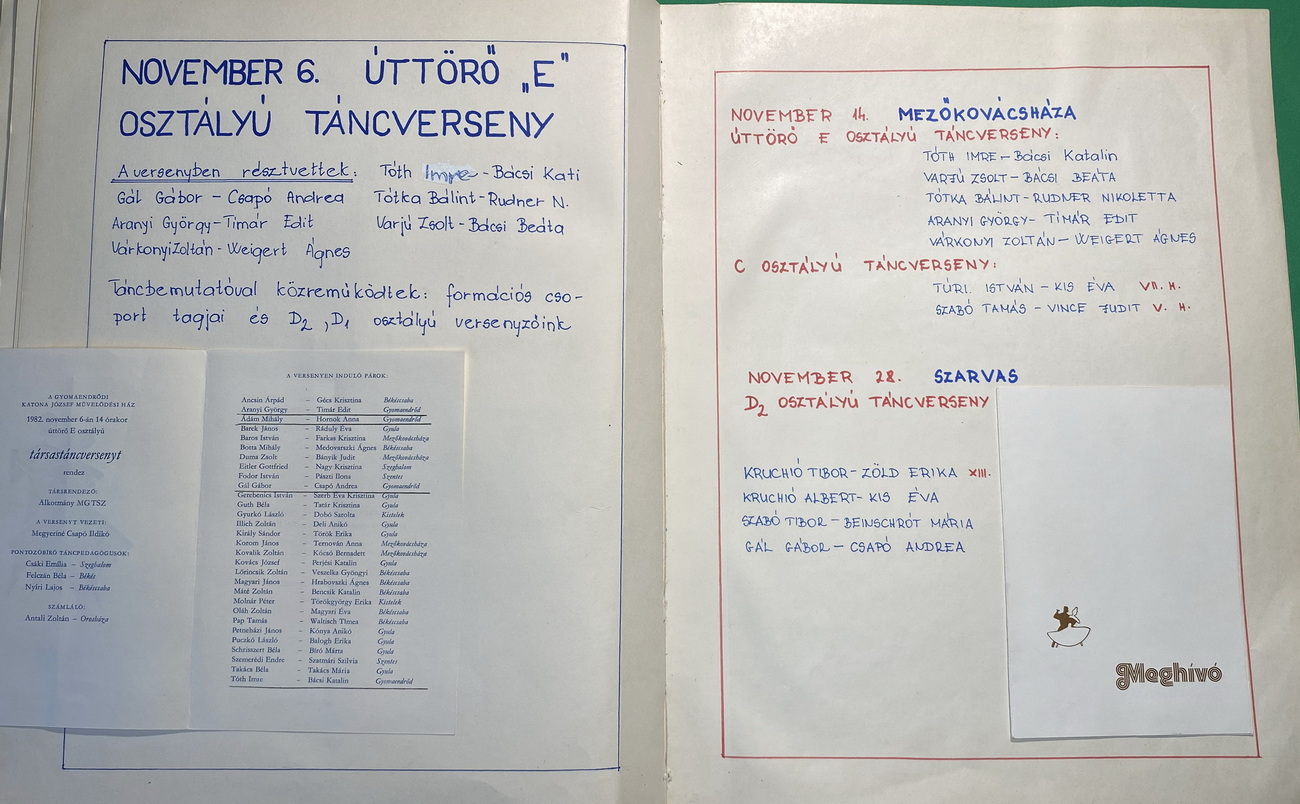 NOVEMBER 6. ÚTTÖRŐ „E"
OSZTÁLYÚ TÁNCVERSENY
A versenyben résztvettek: Tóth Imre - Bácsi Kati
Gál Gábor - Csapó Andrea Tótka Bálint - Rudner N.
Aranyi György - Timár Edit Varjú Zsolt - Bácsi Beáta
Várkonyi Zoltán - Weigert Ágnes
Táncbemutatóval közreműködtek: formációs cso-
port tagjai és D2, D1 osztályú versenyzőink
A GYOMAENDRŐDI
KATONA JÓZSEF MŰVELŐDÉSI HÁZ
1982. november 6-án 14 órakor
úttörő E osztályú
társastáncversenyt
rendez
TÁRSRENDEZŐ:
Alkotmány MGTSZ
A VERSENYT VEZETI:
Megyeriné Csapó Ildikó
PONTOZÓBÍRÓ TÁNCPEDAGÓGUSOK:
Csáki Emília – Szeghalom
Felczán Béla – Békés
Nyíri Lajos – Békéscsaba
SZÁMLÁLÓ:
Antali Zoltán – Orosháza
A VERSENYEN INDULÓ PÁROK:
Ancsin Árpád – Gécs Krisztina Békéscsaba
Aranyi György – Timár Edit Gyomaendrőd
Ádám Mihály – Hornok Anna Gyomaendrőd
Barek János – Ráduly Éva Gyula
Baros István – Farkas Krisztina Mezőkovácsháza
Botta Mihály – Medovarszki Ágnes Békéscsaba
Duma Zsolt – Bányik Judit Mezőkovácsháza
Eitler Gottfried – Nagy Krisztina Szeghalom
Fodor István – Pászti Ilona Szentes
Gál Gábor – Csapó Andrea Gyomaendrőd
Gerebenics István – Szerb Éva Krisztina Gyula
Guth Béla – Tatár Krisztina Gyula
Gyurkó László – Dobó Sarolta Kistelek
Illich Zoltán – Deli Anikó Gyula
Király Sándor – Török Erika Gyula
Korom János – Ternován Anna Mezőkovácsháza
Kovalik Zoltán – Kócsó Bernadett Mezőkovácsháza
Kovács József – Perjési Katalin Gyula
Lőrincsik Zoltán – Veszelka Gyöngyi Békéscsaba
Magyari János – Hrabovszki Ágnes Békéscsaba
Máté Zoltán – Bencsik Katalin Békéscsaba
Molnár Péter – Törökgyörgy Erika Kistelek
Oláh Zoltán – Magyari Éva Békéscsaba
Pap Tamás – Waltisch Tímea Békéscsaba
Petneházi János – Kónya Anikó Gyula
Puczkó László – Balogh Erika Gyula
Schriszert Béla – Bíró Márta Gyula
Szemerédi Endre – Szatmári Szilvia Szentes
Takács Béla – Takács Mária Gyula
Tóth Imre – Bácsi Katalin Gyomaendrőd
NOVEMBER 14. MEZŐKOVÁCSHÁZA
ÚTTÖRŐ E OSZTÁLYÚ TÁNCVERSENY:
TÓTH IMRE – Bácsi Katalin
VARJÚ ZSOLT – BÁCSI BEÁTA
TÓTKA BÁLINT - RUDNER NIKOLETTA
ARANYI GYÖRGY - TÍMÁR EDIT
VÁRKONYI ZOLTÁN – WEIGERT ÁGNES
C OSZTÁLYÚ TÁNCVERSENY:
TÚRI ISTVÁN - KIS ÉVA VII. H.
SZABÓ TAMÁS - VINCE JUDIT V. H.
NOVEMBER 28. SZARVAS
D2 OSZTÁLYÚ TÁNCVERSENY
KRUCHIÓ TIBOR - ZÖLD ERIKA XIII.
KRUCHIÓ ALBERT - KIS ÉVA
SZABÓ TIBOR - BEINSCHRÓT MÁRIA
GÁL GÁBOR – CSAPÓ ANDREA
Meghívó